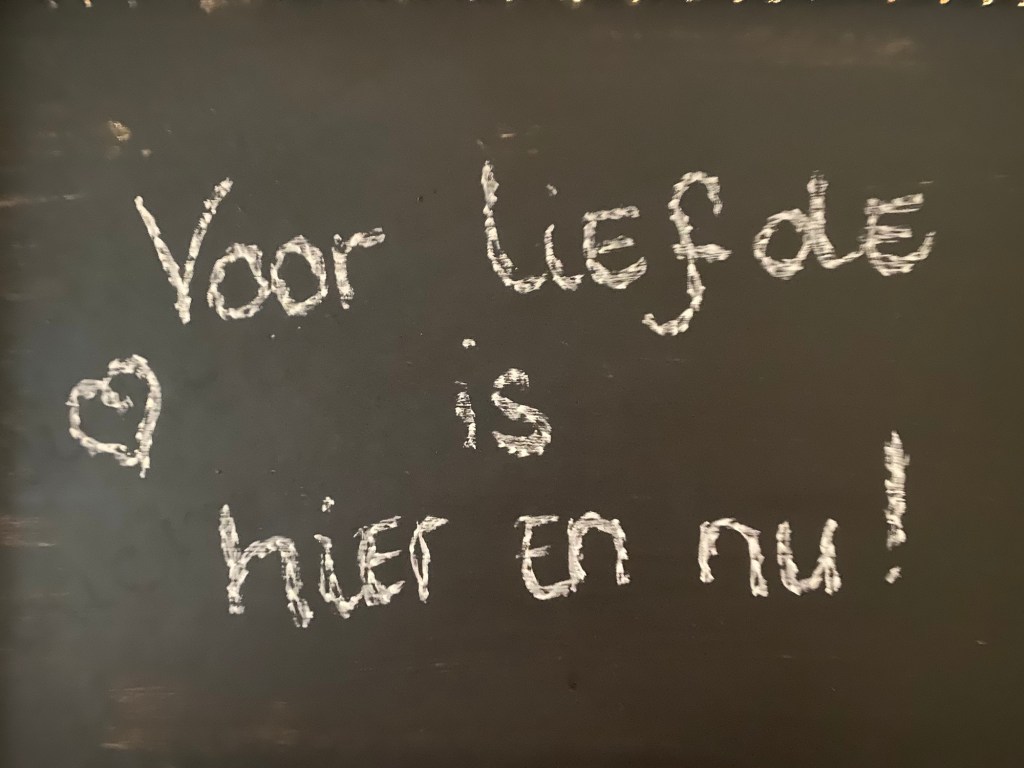 Voor liefde
is
hier en nu!